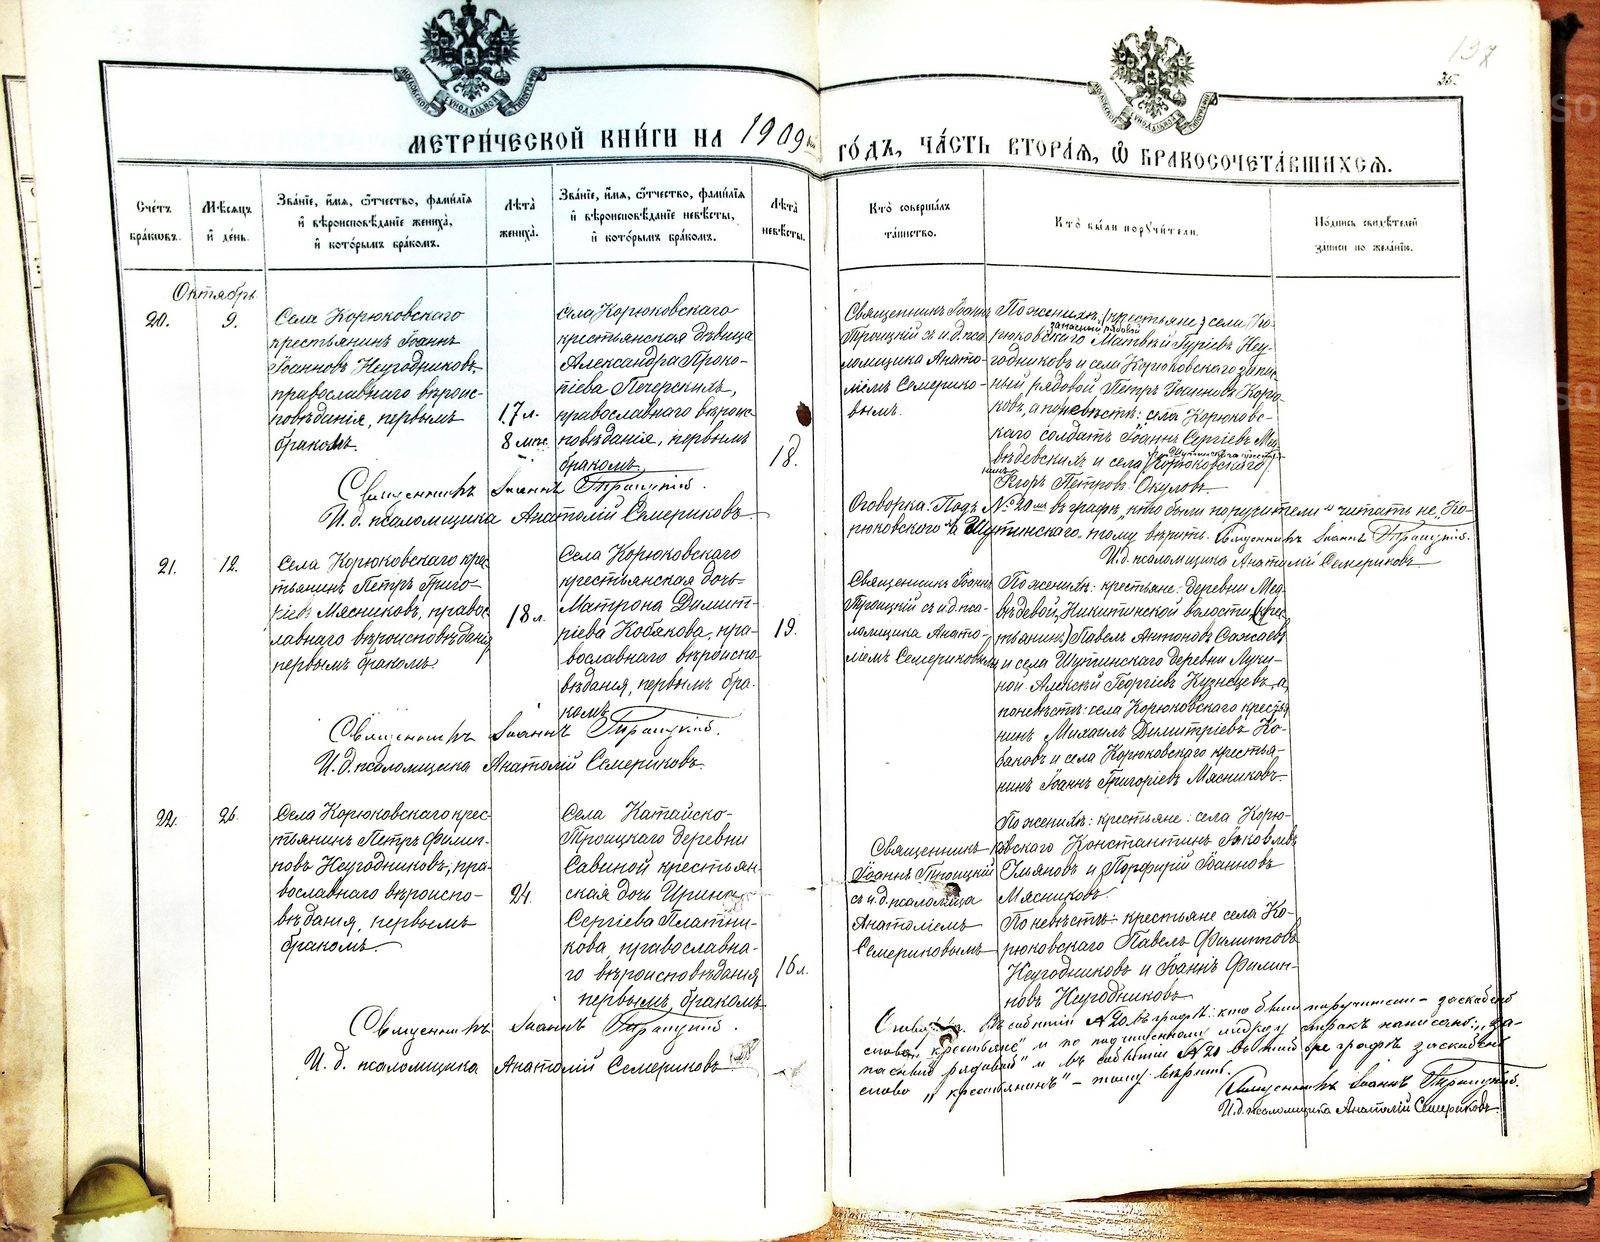 137
35.
МОСКОВСКОЙ СѴНОДАЛЬНОЙ ТИПОГРАФІИ
МОСКОВСКОЙ СѴНОДАЛЬНОЙ ТИПОГРАФІИ
МЕТРИ́ЧЕСКОЙ КНИ́ГИ НА 1909й ГО́ДЪ, ЧА́СТЬ ВТОРА́Я, Ѽ БРАКОСОЧЕТА́ВШИХСЯ.
Сче́тъ бра́кѡвъ.
Мѣ́сяцъ и́ де́нь.
Зва́нїе, и́мя, ѻ́тчество, фами́лїя и́ вѣроисповѣ́данїе жениха̀, и́ кото́рымъ бра́комъ.
Лѣта̀ жениха̀.
Зва́нїе, и́мя, ѻ́тчество, фами́лїя и́ вѣроисповѣ́данїе невѣ́сты, и́ кото́рымъ бра́комъ.
Лѣта̀ невѣ́сты.
Кто̀ соверша́лъ та́инство.
Кто̀ бы́ли порꙋчи́тели.
По́дпись свидѣ́телей за́писи по жела́нїю.
Октябрь
20.
9.
Села Корюковскаго
крестьянинъ Іоаннъ
Іоанновъ Неугодниковъ,
православнаго вѣроис-
повѣданія, первымъ
бракомъ.
17 л.
8 мѣс.
Села Корюковскаго
крестьянская дѣвица
Александра Проко-
піева Печерскихъ,
православнаго вѣроис-
повѣданія, первымъ
бракомъ
18.
Священникъ Іоаннъ
Троицкій съ и.д. пса-
ломщика Анато-
ліемъ Семерико-
вымъ.
По женихѣ: (крестьяне) села Ко-
запасный рядовой
рюковскаго Матвѣй Гуріевъ Неу-
годниковъ и села Корюковскаго запас-
ный рядовой Петръ Іоанновъ Коро-
ковъ, а по невѣстѣ: села Корюковс-
каго солдатъ Іоаннъ Сергіевъ Мед-
вѣдевскихъ и села (Корюковскаго)
Шутинскаго крестья-
нинъ Егоръ Петровъ Окуловъ.
Священникъ Іоаннъ Троицкій.
И.д. псаломщика Анатолій Семериковъ.
Оговорка. Подъ № 20мъ въ графѣ „кто были поручители" читать не „Ко-
рюковскаго" а Шутинскаго, тому вѣрить. Священникъ Іоаннъ Троицкій.
И.д. псаломщика Анатолій Семериковъ
21.
12.
Села Корюковскаго крес-
тьянинъ Петръ Григо-
ріевъ Мясниковъ, правос-
лавнаго вѣроисповѣданія
первымъ бракомъ.
18 л.
Села Корюковскаго
крестьянская дочь
Матрона Димит-
ріева Кобякова, пра-
вославнаго вѣроиспо-
вѣданія, первымъ бра-
комъ
19.
Священникъ Іоаннъ
Троицкій съ и.д. пса-
ломщика Анато-
ліемъ Семериковымъ
По женихѣ: крестьяне: деревни Мед-
вѣдевой, Никитинской волости (крес-
тьянинъ) Павелъ Антоновъ Сажаевъ
и села Шутинскаго деревни Луки-
ной Алексѣй Георгіевъ Кузнецевъ, а
по невѣстѣ: села Корюковскаго крестья-
нинъ Михаилъ Димитріевъ Ко-
баковъ и села Корюковскаго крестья-
нинъ Іоаннъ Григоріевъ Мясниковъ.
Священникъ Іоаннъ Троицкій.
И.д. псаломщика Анатолій Семериковъ.
22.
26.
Села Корюковскаго крес-
тьянинъ Петръ Филип-
повъ Неугодниковъ, пра-
вославнаго вѣроиспо-
вѣданія, первымъ
бракомъ.
24.
Села Катайско-
Троицкаго деревни
Савиной крестьян-
ская дочь Ирина
Сергіева Платни-
кова православна-
го вѣроисповѣданія
первымъ бракомъ
16 л.
Священникъ
Іоаннъ Троицкій
съ и.д. псаломщика
Анатоліемъ
Семериковымъ
По женихѣ: крестьяне: села Корю-
ковскаго Константинъ Іаковлевъ
Ульяновъ и Порфирій Іоанновъ
Мясниковъ.
По невѣстѣ: крестьяне села Ко-
рюковскаго Павелъ Филипповъ
Неугодниковъ и Іоаннъ Филип-
повъ Неугодниковъ
Священникъ Іоаннъ Троицкій.
И.д. псаломщика Анатолій Семериковъ
Оговорка. Въ событіи № 20 въ графѣ: кто были поручители – заскоблено
слово „крестьяне" и по подчищенному между строкъ написано: „за-
пасный рядовой" и въ событіи № 21 въ той же графѣ заскоблено
слово „крестьянинъ" – тому вѣрить.
Священникъ Іоаннъ Троицкій.
И.д. псаломщика Анатолій Семериковъ.